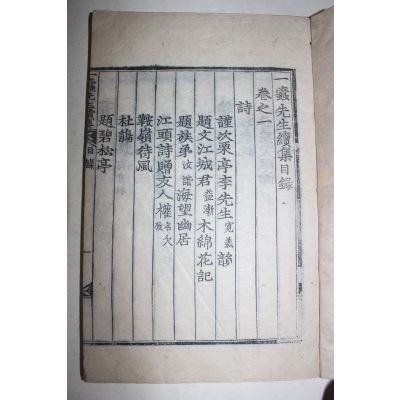 一蠹先生續集目錄
卷之一
詩
謹次栗亭李先生寬義韻
題文江城君益漸木綿花記
題族弟汝諧海望幽居
江頭詩贈友人權名欠
鞍嶺待風
杜鵑
題碧松亭
一蠹先生續集 目錄